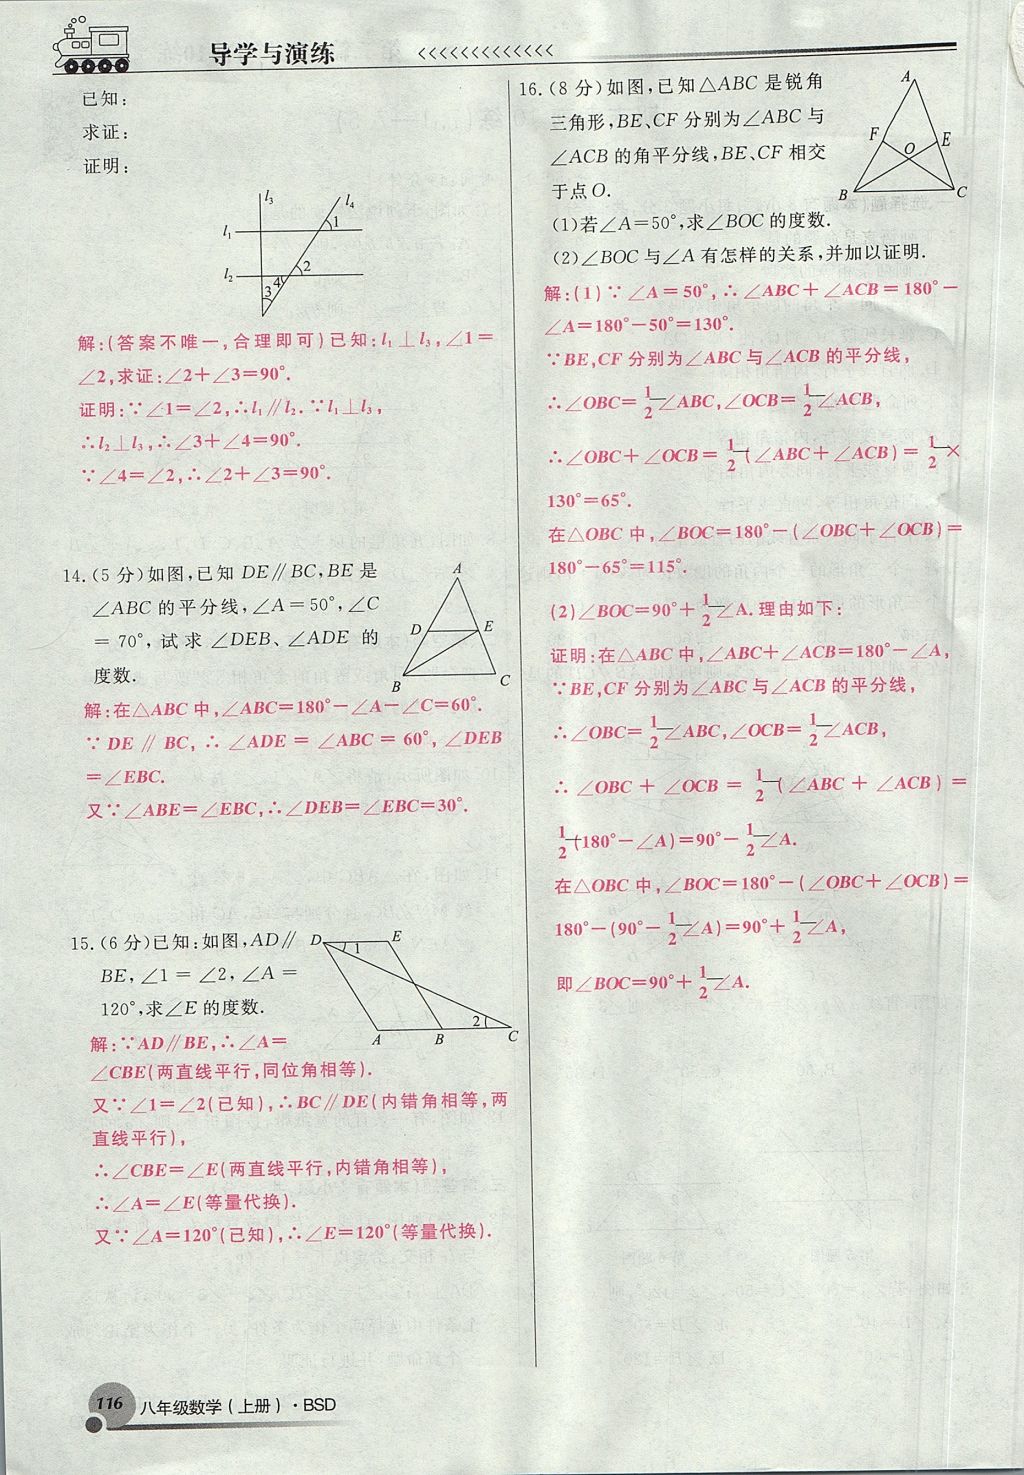 导学与演练
已知:
求证:
证明:
l₃
l₄
l₁
1
l₂
2
4
3
解:(答案不唯一,合理即可)已知:l₁⊥l₃,∠1=
∠2,求证:∠2+∠3=90°.
证明:∵∠1=∠2,∴l₁∥l₂.∵l₁⊥l₃,
∴l₂⊥l₃,∴∠3+∠4=90°.
∵∠4=∠2,∴∠2+∠3=90°.
14.(5分)如图,已知DE∥BC,BE是
∠ABC的平分线,∠A=50°,∠C
=70°,试求∠DEB、∠ADE的
度数.
A
D
E
B
C
解:在△ABC中,∠ABC=180°-∠A-∠C=60°.
∵DE∥BC,∴∠ADE=∠ABC=60°,∠DEB
=∠EBC.
又∵∠ABE=∠EBC,∴∠DEB=∠EBC=30°.
15.(6分)已知:如图,AD∥
BE,∠1=∠2,∠A=
120°,求∠E的度数.
D
E
1
2
A
B
C
解:∵AD∥BE,∴∠A=
∠CBE(两直线平行,同位角相等).
又∵∠1=∠2(已知),∴BC∥DE(内错角相等,两
直线平行),
∴∠CBE=∠E(两直线平行,内错角相等),
∴∠A=∠E(等量代换).
又∵∠A=120°(已知),∴∠E=120°(等量代换).
16.(8分)如图,已知△ABC是锐角
三角形,BE、CF分别为∠ABC与
∠ACB的角平分线,BE、CF相交
于点O.
A
F
E
O
B
C
(1)若∠A=50°,求∠BOC的度数.
(2)∠BOC与∠A有怎样的关系,并加以证明.
解:(1)∵∠A=50°,∴∠ABC+∠ACB=180°-
∠A=180°-50°=130°.
∵BE,CF分别为∠ABC与∠ACB的平分线,
∴∠OBC=1/2∠ABC,∠OCB=1/2∠ACB,
∴∠OBC+∠OCB=1/2(∠ABC+∠ACB)=1/2×
130°=65°.
在△OBC中,∠BOC=180°-(∠OBC+∠OCB)=
180°-65°=115°.
(2)∠BOC=90°+1/2∠A.理由如下:
证明:在△ABC中,∠ABC+∠ACB=180°-∠A,
∵BE,CF分别为∠ABC与∠ACB的平分线,
∴∠OBC=1/2∠ABC,∠OCB=1/2∠ACB,
∴∠OBC+∠OCB=1/2(∠ABC+∠ACB)=
1/2(180°-∠A)=90°-1/2∠A.
在△OBC中,∠BOC=180°-(∠OBC+∠OCB)=
180°-(90°-1/2∠A)=90°+1/2∠A,
即∠BOC=90°+1/2∠A.
116 八年级数学(上册)·BSD